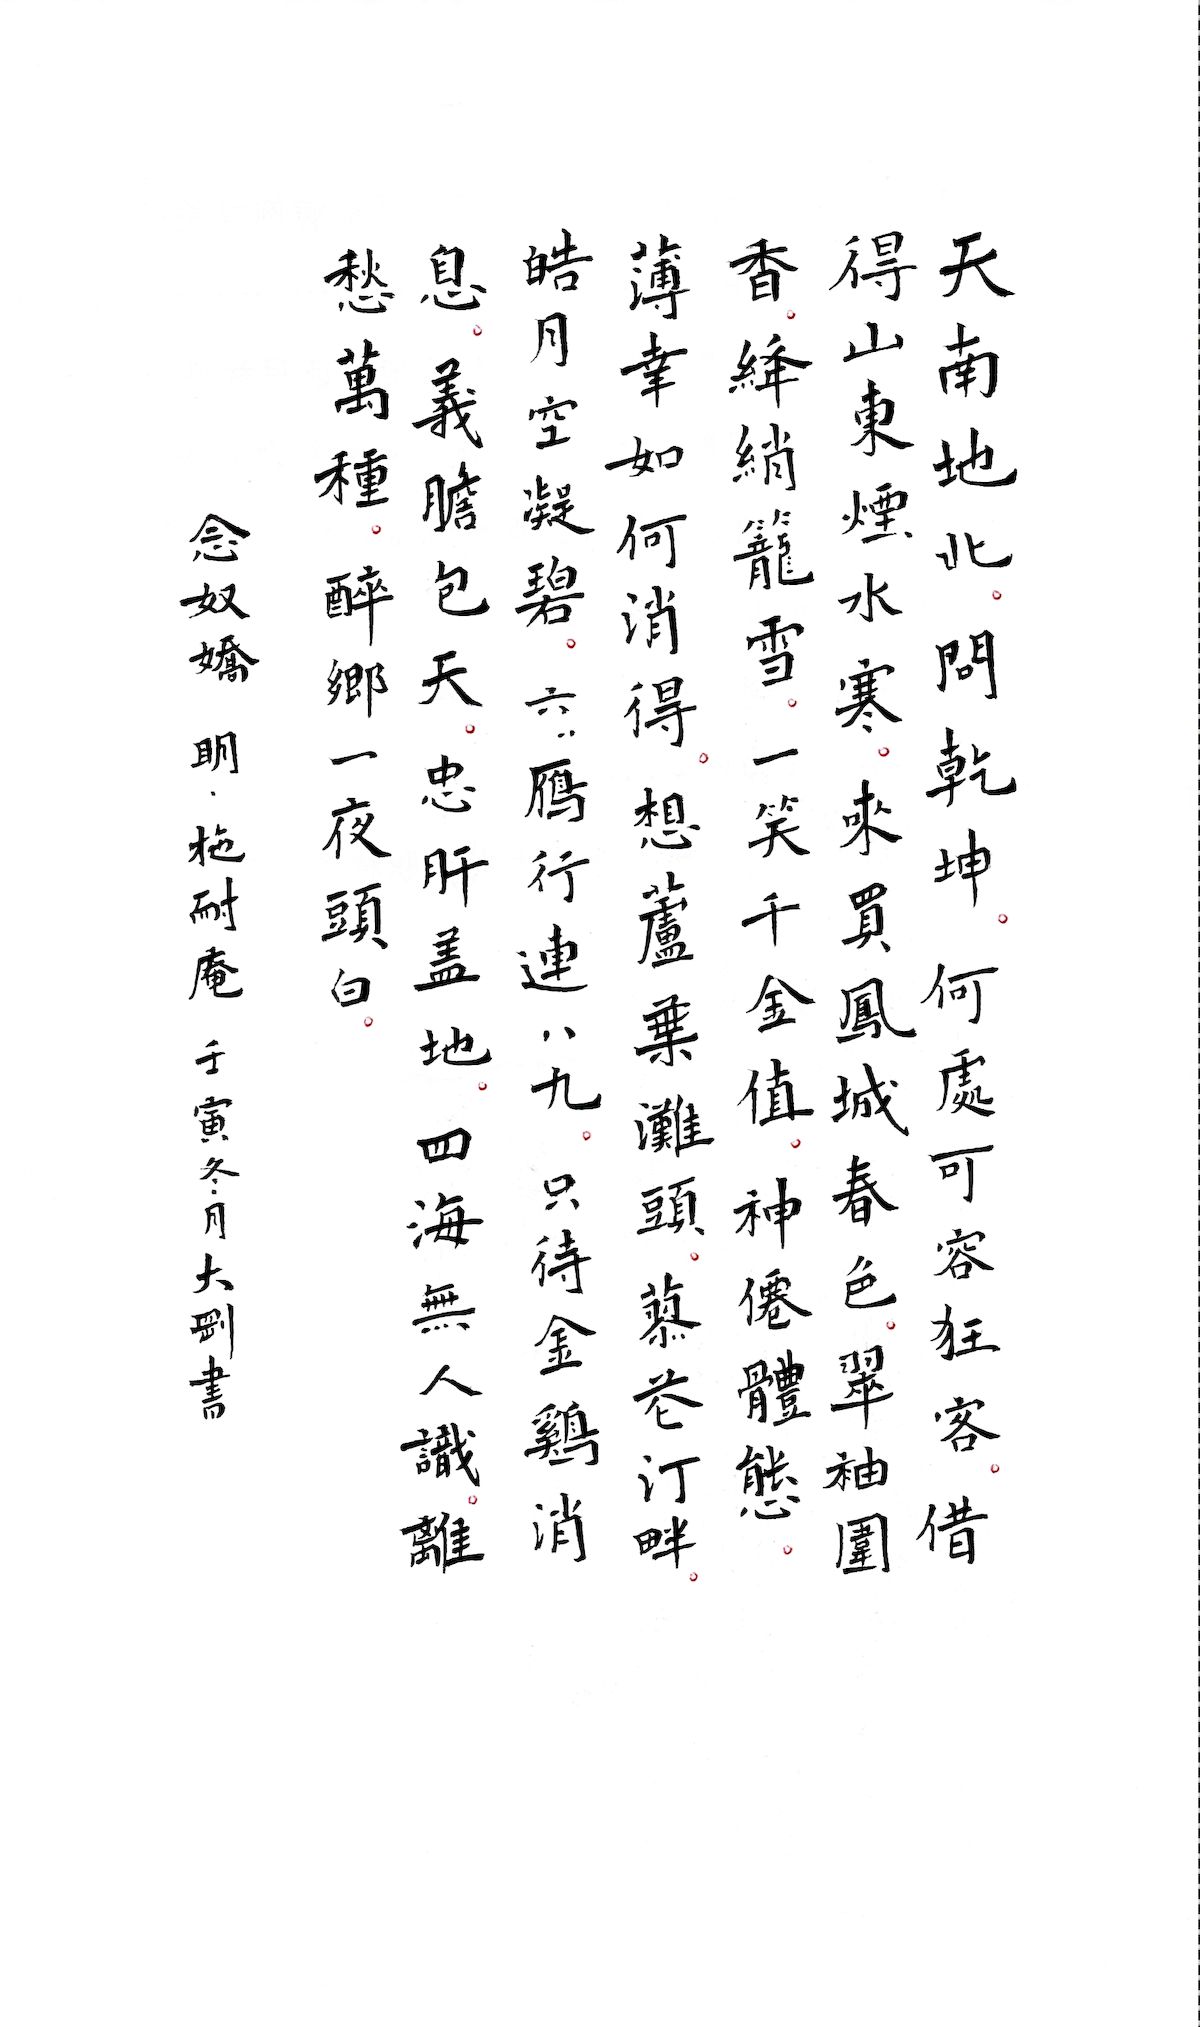 天南地北。問乾坤。何處可容狂客。借
得山東煙水寒。來買鳳城春色。翠袖圍
香。絳綃籠雪。一笑千金值。神僊體態。
薄幸如何消得。想蘆葉灘頭。蓼花汀畔。
皓月空凝碧。六六鴈行連八九。只待金鷄消
息。義膽包天。忠肝盖地。四海無人識。離
愁萬種。醉鄉一夜頭白。
念奴嬌 明·施耐庵 壬寅冬月大剛書